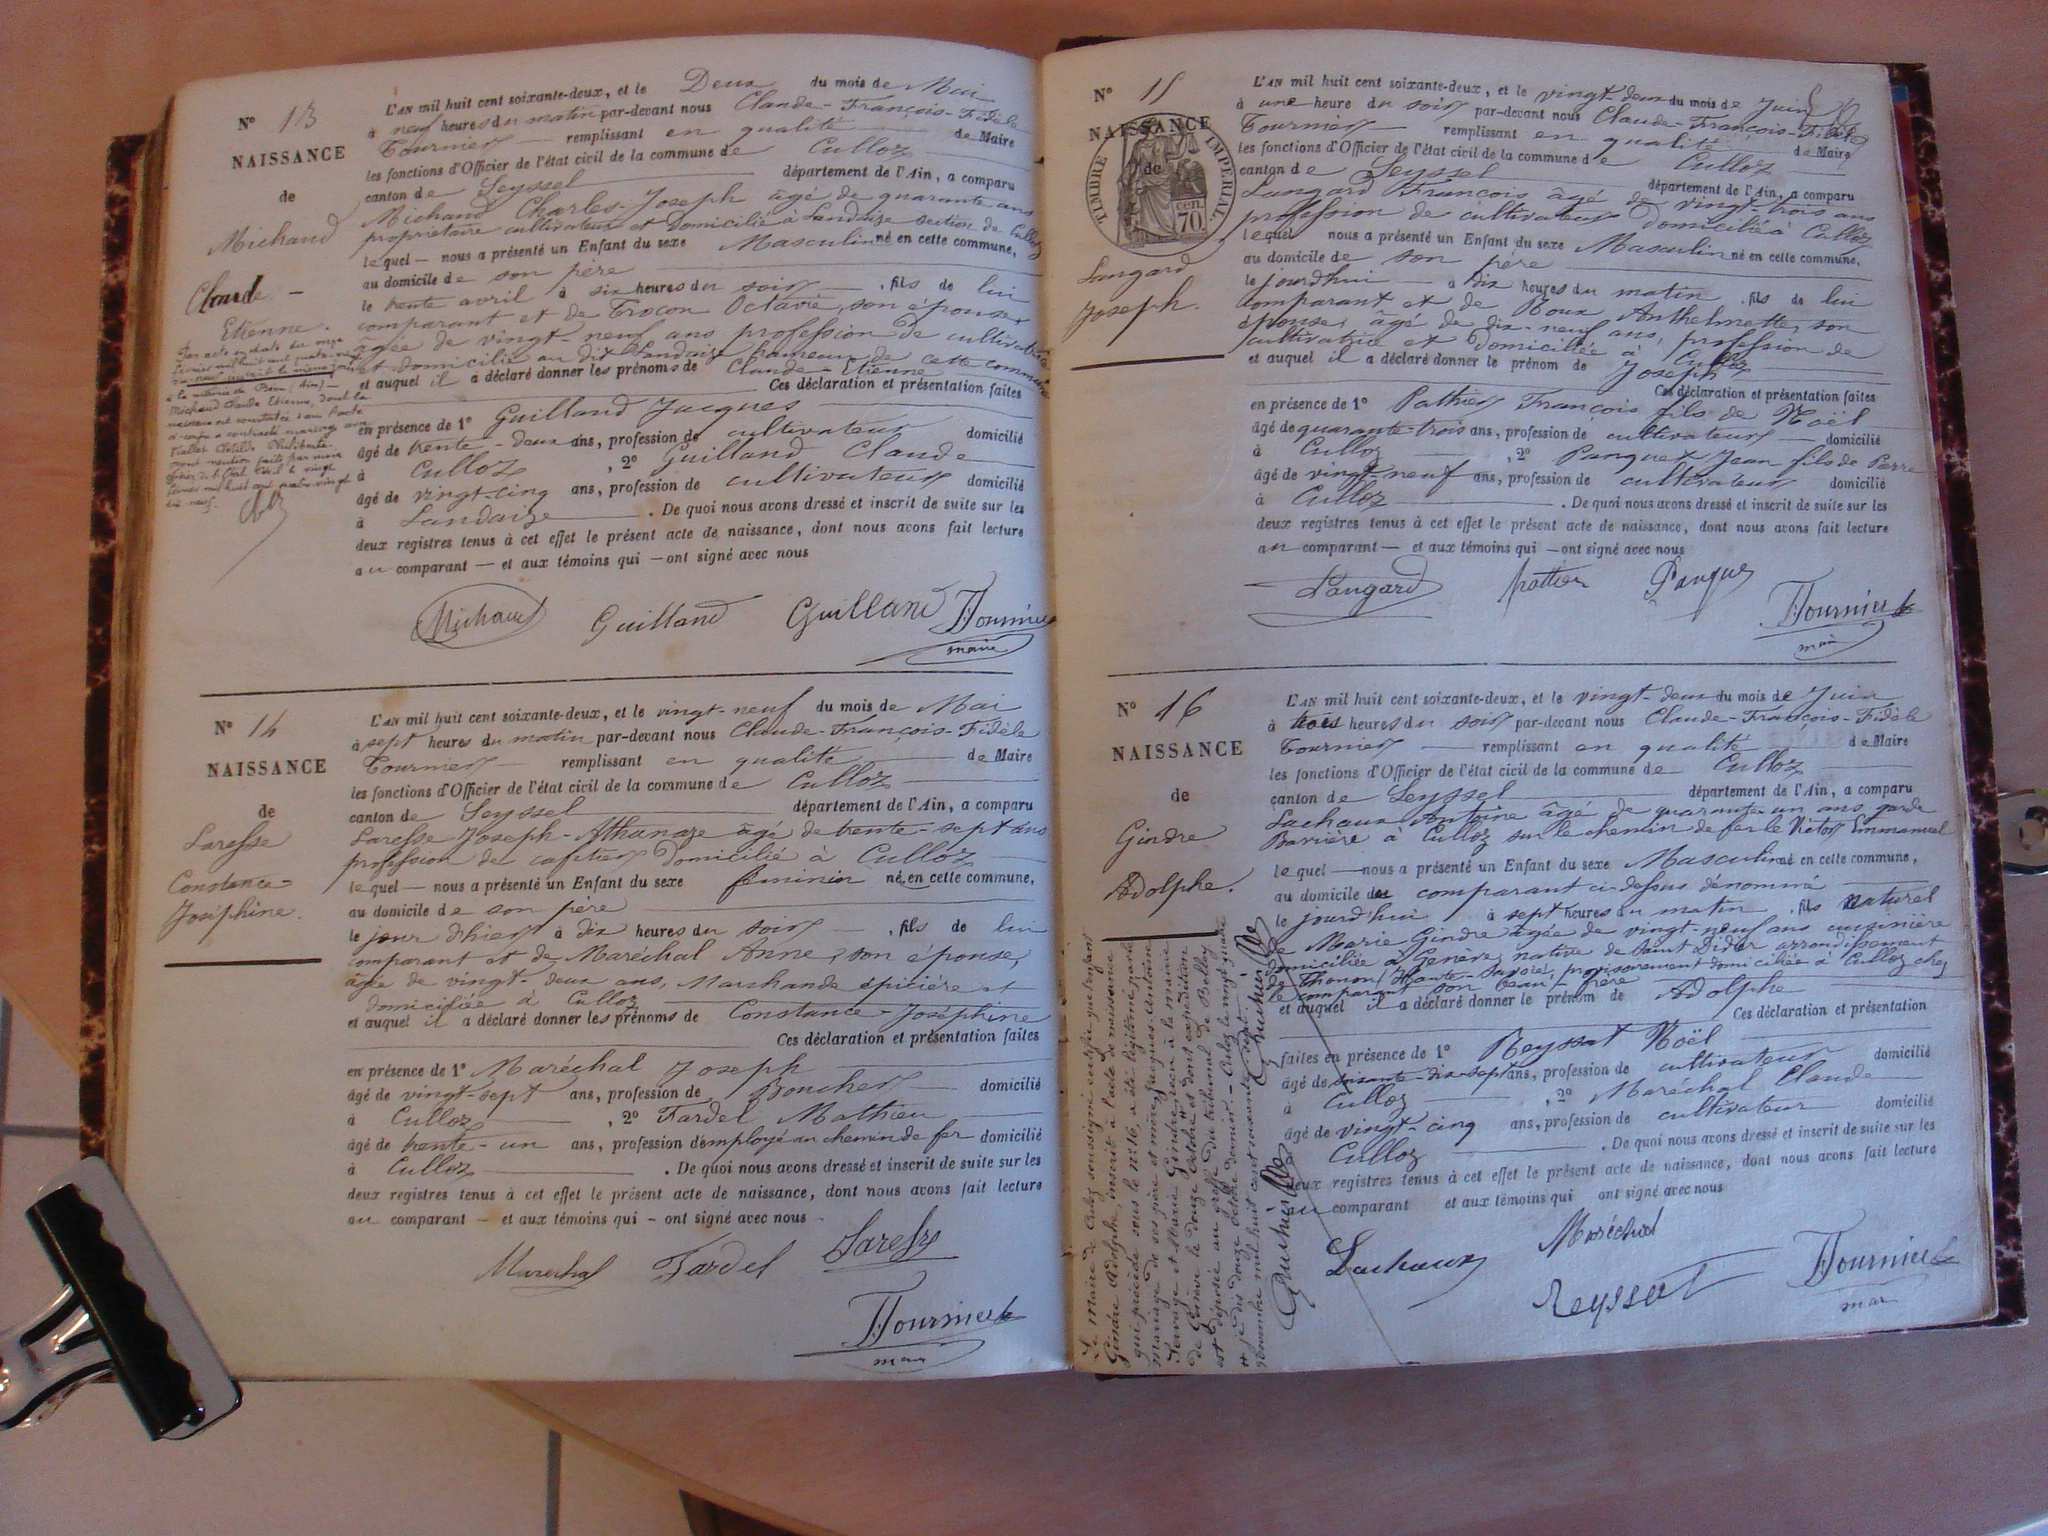 N° 13
NAISSANCE
de
Michaud
Claude -
Etienne.
L'AN mil huit cent soixante-deux, et le Deux du mois de Mai
à neuf heures du matin par-devant nous Claude-François-Fidèle
Tournier remplissant en qualité de Maire
les fonctions d'Officier de l'état civil de la commune de Culloz
canton de Seyssel département de l'Ain, a comparu
Michaud Charles-Joseph âgé de quarante ans
propriétaire cultivateur et domicilié à Landaize section de Culloz
lequel — nous a présenté un Enfant du sexe Masculin né en cette commune,
au domicile de son père
le trente avril à six heures du soir — , fils de lui
comparant et de Trocon Octavie, son épouse,
âgée de vingt-neuf ans profession de cultivatrice
et domiciliée au dit Landaize hameau de cette commune
et auquel il a déclaré donner les prénoms de Claude-Etienne
Ces déclaration et présentation faites
en présence de 1° Guilland Jacques
âgé de trente-deux ans, profession de cultivateur domicilié
à Culloz , 2° Guilland Claude
âgé de vingt-cinq ans, profession de cultivateur domicilié
à Landaize . De quoi nous avons dressé et inscrit de suite sur les
deux registres tenus à cet effet le présent acte de naissance, dont nous avons fait lecture
au comparant — et aux témoins qui — ont signé avec nous
Par acte en date du onze
à la mairie de
Michaud Claude Etienne, dont la
naissance est constatée dans l'acte
ci-contre a contracté mariage avec
Michaud Guilland Guilland F Tournier
maire
N° 14
NAISSANCE
de
Laresse
Constance-
Joséphine.
L'AN mil huit cent soixante-deux, et le vingt-neuf du mois de Mai
à sept heures du matin par-devant nous Claude-François-Fidèle
Tournier — remplissant en qualité de Maire
les fonctions d'Officier de l'état civil de la commune de Culloz
canton de Seyssel département de l'Ain, a comparu
Laresse Joseph-Athanaze âgé de trente-sept ans
profession de cafetier domicilié à Culloz
lequel — nous a présenté un Enfant du sexe féminin né en cette commune,
au domicile de son père
le jour d'hier à dix heures du soir — , fils de lui
comparant et de Maréchal Anne, son épouse,
âgée de vingt-deux ans, Marchande épicière et
domiciliée à Culloz
et auquel il a déclaré donner les prénoms de Constance-Joséphine
Ces déclaration et présentation faites
en présence de 1° Maréchal Joseph
âgé de vingt-sept ans, profession de Boucher — domicilié
à Culloz , 2° Fardel Mathieu
âgé de trente-un ans, profession d'employé au chemin de fer domicilié
à Culloz . De quoi nous avons dressé et inscrit de suite sur les
deux registres tenus à cet effet le présent acte de naissance, dont nous avons fait lecture
au comparant — et aux témoins qui — ont signé avec nous
Marechal Fardel Laresse
F Tournier
maire
N° 15
NAISSANCE
de
TIMBRE IMPÉRIAL.
70 cen.
Langard
Joseph.
L'AN mil huit cent soixante-deux, et le vingt-deux du mois de Juin
à une heure du soir par-devant nous Claude-François-Fidèle
Tournier — remplissant en qualité de Maire
les fonctions d'Officier de l'état civil de la commune de Culloz
canton de Seyssel département de l'Ain, a comparu
Langard François âgé de vingt-trois ans
profession de cultivateur domicilié à Culloz
lequel nous a présenté un Enfant du sexe Masculin né en cette commune,
au domicile de son père
le jourd'hui — à dix heures du matin , fils de lui
comparant et de Roux Anthelmette, son
épouse, âgé de dix-neuf ans, profession de
cultivatrice et domiciliée à Culloz
et auquel il a déclaré donner le prénom de Joseph
Ces déclaration et présentation faites
en présence de 1° Pathier François fils de Noël
âgé de quarante-trois ans, profession de cultivateur — domicilié
à Culloz , 2° Panquet Jean fils de Pierre
âgé de vingt-neuf ans, profession de cultivateur domicilié
à Culloz . De quoi nous avons dressé et inscrit de suite sur les
deux registres tenus à cet effet le présent acte de naissance, dont nous avons fait lecture
au comparant — et aux témoins qui — ont signé avec nous
Langard
F Tournier
N° 16
NAISSANCE
de
Gindre
Adolphe.
L'AN mil huit cent soixante-deux, et le vingt-deux du mois de Juin
à trois heures du soir par-devant nous Claude-François-Fidèle
Tournier — remplissant en qualité de Maire
les fonctions d'Officier de l'état civil de la commune de Culloz
canton de Seyssel département de l'Ain, a comparu
Lachaux Antoine âgé de quarante-un ans garde
Barrière à Culloz sur le chemin de fer le Victor Emmanuel
lequel — nous a présenté un Enfant du sexe Masculin né en cette commune,
au domicile du comparant ci-dessus dénommé
le jourd'hui à sept heures du matin , fils naturel
de Marie Gindre âgée de vingt-neuf ans cuisinière
domiciliée à Genève, native de Saint Didier arrondissement
de Thonon (Haute-Savoie), provisoirement domiciliée à Culloz chez
le comparant son beau-frère
et auquel il a déclaré donner le prénom de Adolphe
Ces déclaration et présentation
faites en présence de 1° Reyssat Noël
âgé de soixante-dix-sept ans, profession de cultivateur domicilié
à Culloz , 2° Maréchal Claude
âgé de vingt-cinq ans, profession de cultivateur domicilié
Culloz . De quoi nous avons dressé et inscrit de suite sur les
deux registres tenus à cet effet le présent acte de naissance, dont nous avons fait lecture
au comparant et aux témoins qui ont signé avec nous
Lachaux Maréchal
Reyssat F Tournier
Le Maire de Culoz soussigné certifie que l'enfant
Gindre Adolphe, inscrit à l'acte de naissance
qui précède sous le n° 16, a été légitimé par le
mariage de ses père et mère, Jacques Antoine
et Marie Gindre, reçu à la mairie
de Genève le douze Octobre et dont expédition
est déposée au greffe du tribunal de Belley